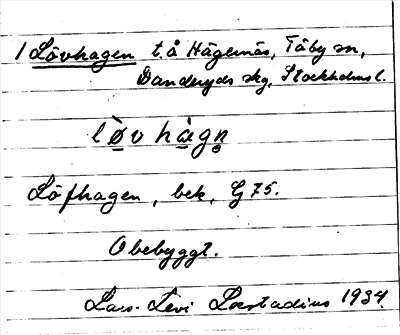 1 Lövhagen t.å Hägernäs, Täby sn,
Danderyds skg, Stockholms l.
lø̀v hàgn̥
Löfhagen, bek, G 75.
Obebyggt.
Lars-Levi Læstadius 1934